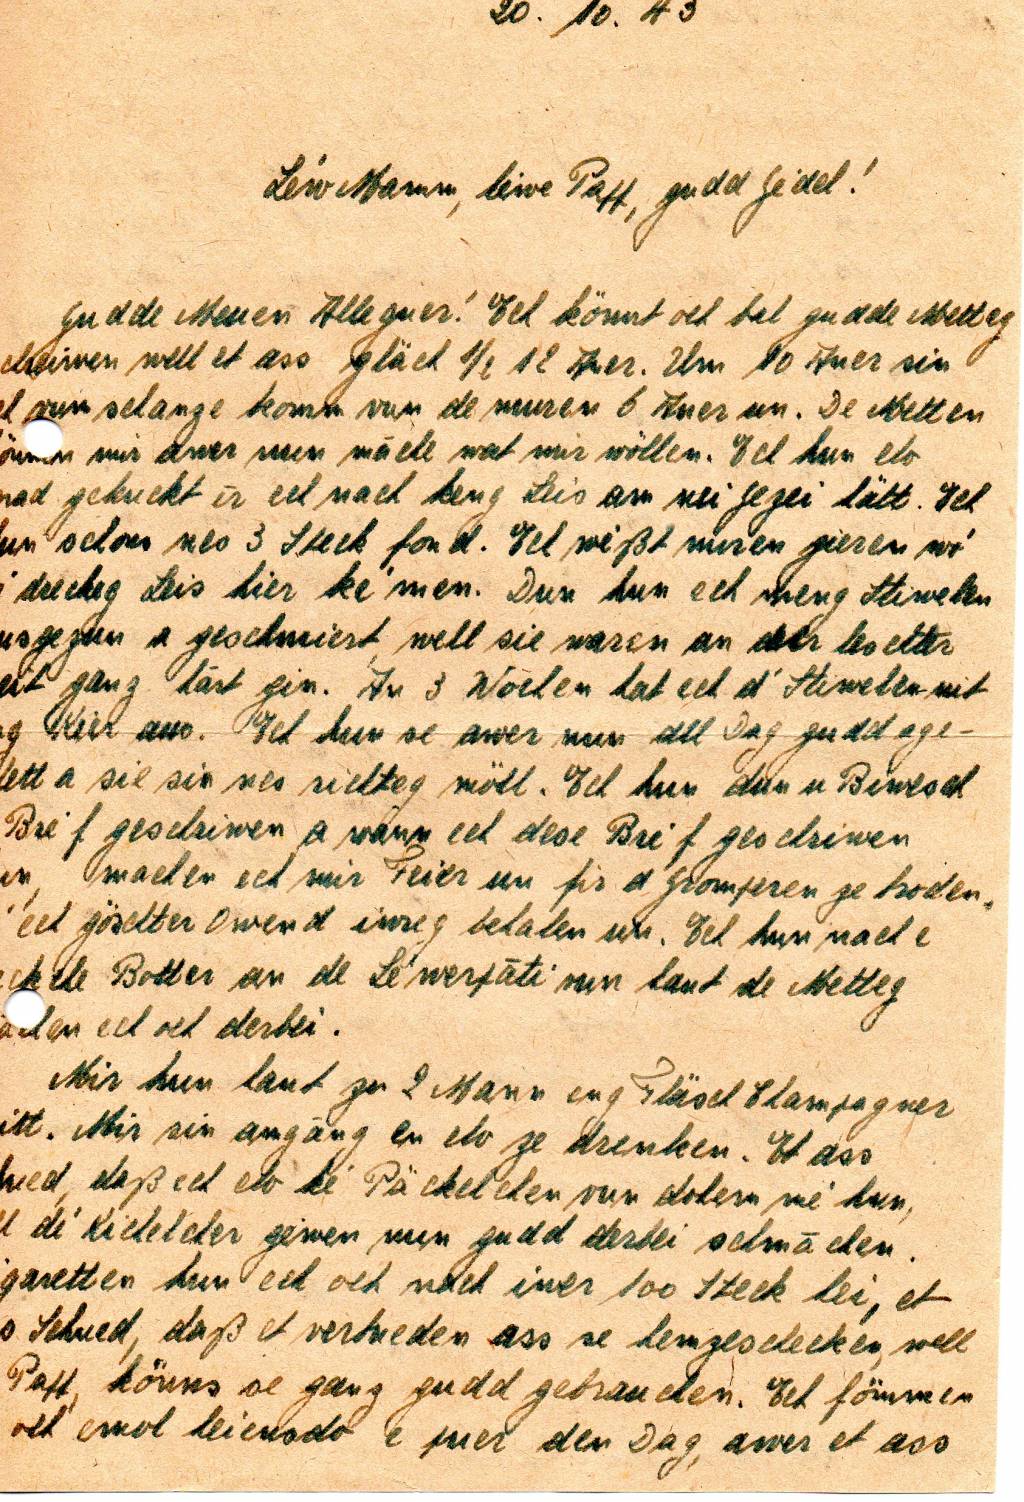 20. 10. 43
Léiw Mamm, léiwe Papp, gudd Jeidel!
Gudde Mueren Alleguer! Ech könnt och bal gudde Metteg
chreiwen well et ass gläich 1/2 12 Auer. Um 10 Auer sin
vun schanze komm vun de muren 6 Auer un. De Metten
önnen mir awer nun mäche wat mir wöllen. Ech hun elo
nad gekuckt ir ech nach keng Leis am nei Gezei hätt. Ech
un schons nes 3 Steck fond. Ech weißt muren gieren wi
dreckeg Leis hier ké'men. Dun hun ech meng Stiwelen
usgezun a geschmiert, well sie waren an der leschter
eit ganz hart gin. An 3 Wochen hat ech d' Stiwelen nit
Kéier aus. Ech hun se awer nun all Dag gudd age-
ett a sie sin nes richteg möll. Ech hun dun u Biwesch
Bréi f geschriwen a wann ech dese Bréi f geschriwen
un, machen ech mir Feier un fir d Gromperen ze broden,
ech göschter Owend iwreg behalen un. Ech hun nach e
ckche Botter an de Léiwerpäti vun haut de Metteg
achen ech och derbei.
Mir hun haut zu 2 Mann eng Fläsch Champagner
itt. Mir sin amgäng en elo ze drenken. Et ass
hued, daß ech elo ké Päckelchen vun dohem méi hun,
di Kichelcher gewen nun gudd derbei schmächen.
garetten hun ech och nach iwer 100 Steck lei, et
Schued, daß et verbueden ass se hemzeschecken, well
Papp, könns se ganz gudd gebrauchen. Ech fömmen
och emol heiensdo e puer den Dag, awer et ass